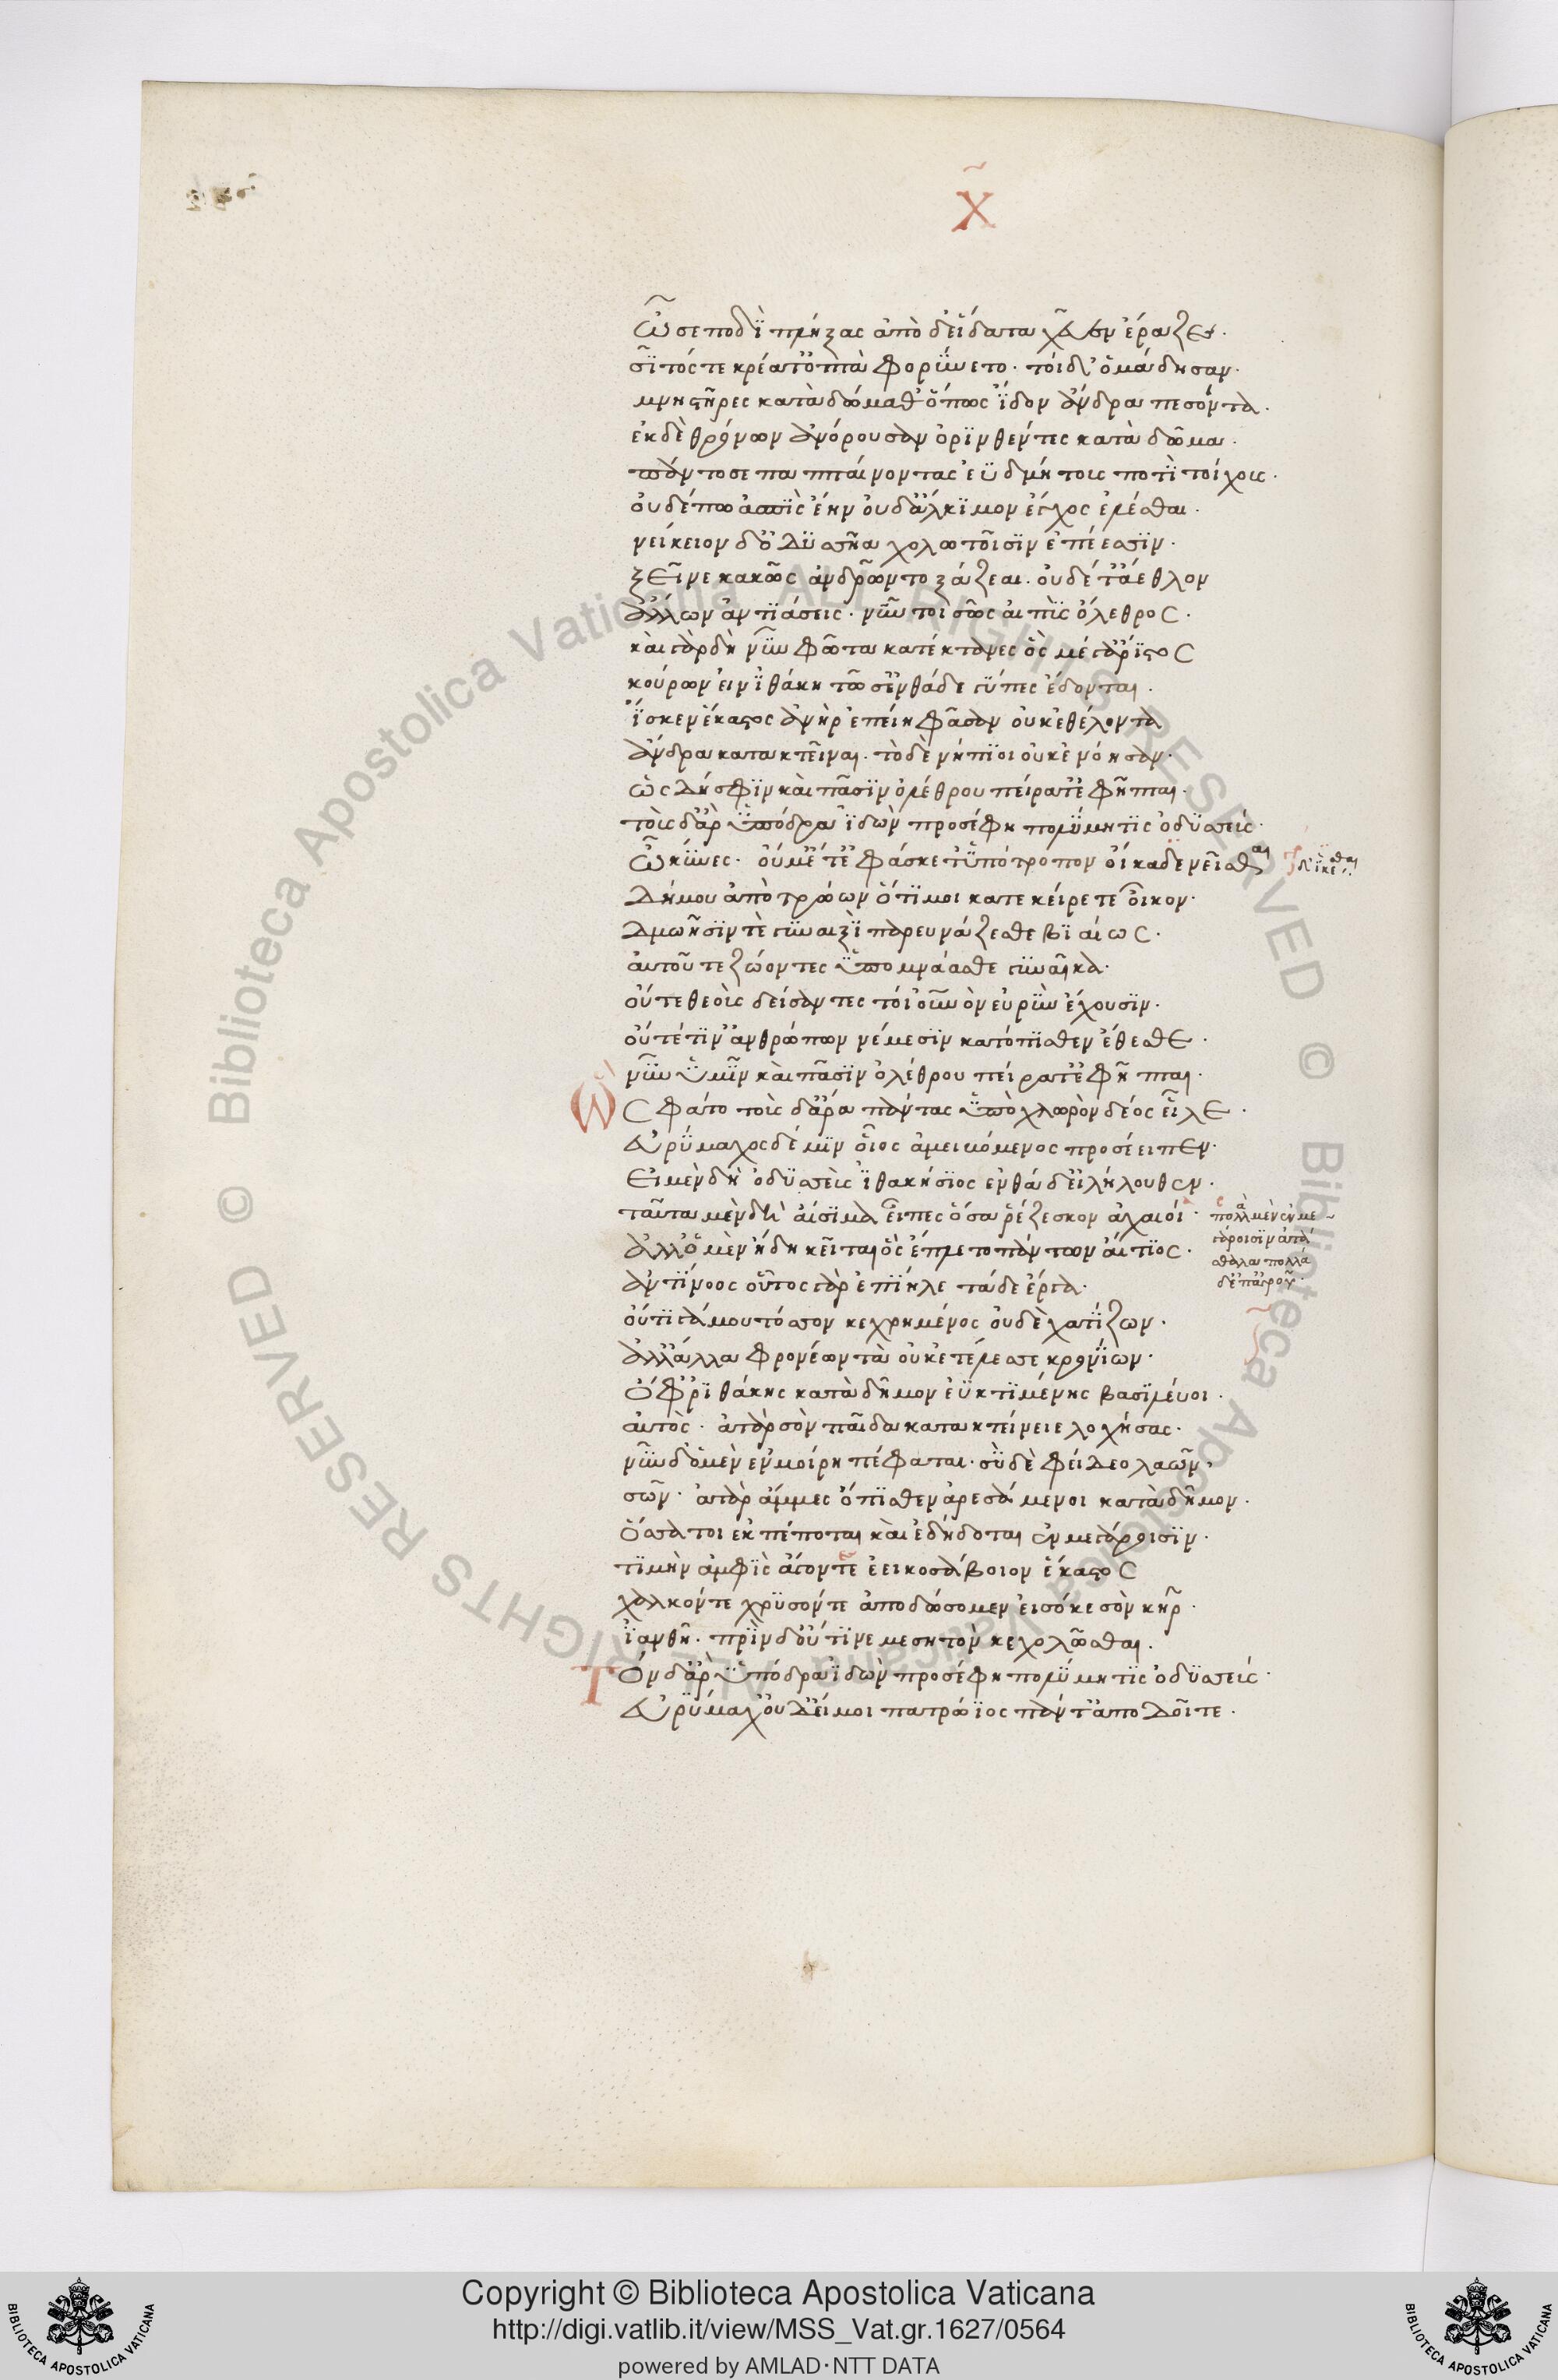 Χ
Ὦσε ποδὶ πλήξας ἀπὸ δ' εἴδατα χεῦεν ἔραζε·
σῖτός τε κρέα τ' ὀπτὰ φορύνετο· τοὶ δ' ὁμάδησαν·
μνηστῆρες κατὰ δώμαθ' ὅπως ἴδον ἄνδρα πεσόντα·
ἐκ δὲ θρόνων ἀνόρουσαν ὀρινθέντες κατὰ δῶμα·
πάντοσε παπταίνοντας ἐϋδμήτοις ποτὶ τοίχοις·
οὐδέ πω ἀσπὶς ἔην οὐδ' ἄλκιμον ἔγχος ἑλέσθαι·
νείκειον δ' Ὀδυσῆα χολωτοῖσιν ἐπέεσσιν·
ξεῖνε κακῶς ἀνδρῶν τοξάζεαι· οὐδέ τ' ἀέθλον
ἄλλων ἀντιάσεις· νῦν τοι σῶς αἰπὺς ὄλεθρος·
καὶ γὰρ δὴ νῦν φῶτα κατέκτανες ὃς μέγ' ἄριστος
κούρων εἰν Ἰθάκῃ τῶ σ' ἐνθάδε γῦπες ἔδονται·
ἴσκεν ἕκαστος ἀνὴρ ἐπείη φᾶσαν οὐκ ἐθέλοντα
ἄνδρα κατακτεῖναι· τὸ δὲ νήπιοι οὐκ ἐνόησαν·
ὡς δή σφιν καὶ πᾶσιν ὀλέθρου πείρατ' ἐφῆπται·
τοὺς δ' ἂρ ὑπόδρα ἰδὼν προσέφη πολύμητις Ὀδυσσεύς·
Ὦ κύνες· οὔ μ' ἔτ' ἐφάσκετ' ὑπότροπον οἴκαδε νεῖσθαι
δ' ἱκέσθαι
Δήμου ἀπὸ τρώων ὅτι μοι κατεκείρετε οἶκον·
Δμωῇσιν τὲ γυναιξὶ παρευνάζεσθε βιαίως·
αὐτοῦ τε ζώοντες ὑπομνάασθε γυναῖκα·
οὔτε θεοὺς δείσαντες τοὶ οὐρανὸν εὐρὺν ἔχουσιν·
οὔτέ τιν' ἀνθρώπων νέμεσιν κατόπισθεν ἔθεσθε·
νῦν ὑμῖν καὶ πᾶσιν ὀλέθρου πείρατ' ἐφῆπται·
Ὣς φάτο τοὺς δ' ἄρα πάντας ὑπὸ χλωρὸν δέος εἷλε·
Εὐρύμαχος δέ μιν οἶος ἀμειβόμενος προσέειπεν·
Εἰ μὲν δὴ Ὀδυσσεὺς Ἰθακήσιος ἐνθάδ' εἰλήλουθεν·
ταῦτα μὲν δὴ αἴσιμα εἶπες ὅσα ῥέζεσκον ἀχαιοί·
πολλὰ μὲν ἐν με-
γάροισιν ἀτά
σθαλα πολλὰ
δ' ἐπ' ἀγροῦ·
ἀλλ' ὃ μὲν ἤδη κεῖται ὃς ἔπλετο πάντων αἴτιος·
ἀντίνοος οὗτος γὰρ ἐπίηλε τάδε ἔργα·
οὔτι γάμου τόσσον κεχρημένος οὐδὲ χατίζων·
ἀλλ' ἄλλα φρονέων τὰ οὐκ ἐτέλεσσε κρονίων·
Ὄφρ' Ἰθάκης κατὰ δῆμον ἐϋκτιμένης βασιλεύοι·
αὐτὸς· ἀτὰρ σὸν παῖδα κατακτείνειε λοχήσας·
νῦν δ' ὁ μὲν ἐν μοίρῃ πέφαται· σὺ δὲ φείδεο λαῶν·
σῶν· ἀτὰρ ἄμμες ὄπισθεν ἀρεσάμενοι κατὰ δῆμον·
Ὅσσα τοι ἐκπέποται καὶ ἐδήδοται ἐν μεγάροισιν·
τιμὴν ἀμφὶς ἄγοντε ἐεικοσάβοιον ἕκαστος
χαλκόν τε χρυσόν τε ἀποδώσομεν εἰσόκε σὸν κῆρ·
ἰανθῇ· πρὶν δ' οὔτι νεμεσητὸν κεχολῶσθαι·
Τὸν δ' ἂρ ὑπόδρα ἰδὼν προσέφη πολύμητις Ὀδυσσεύς·
Εὐρύμαχ' οὐδ' εἴ μοι πατρώϊος πάντ' ἀποδοῖτε·
Copyright © Biblioteca Apostolica Vaticana
http://digi.vatlib.it/view/MSS_Vat.gr.1627/0564
powered by AMLAD·NTT DATA